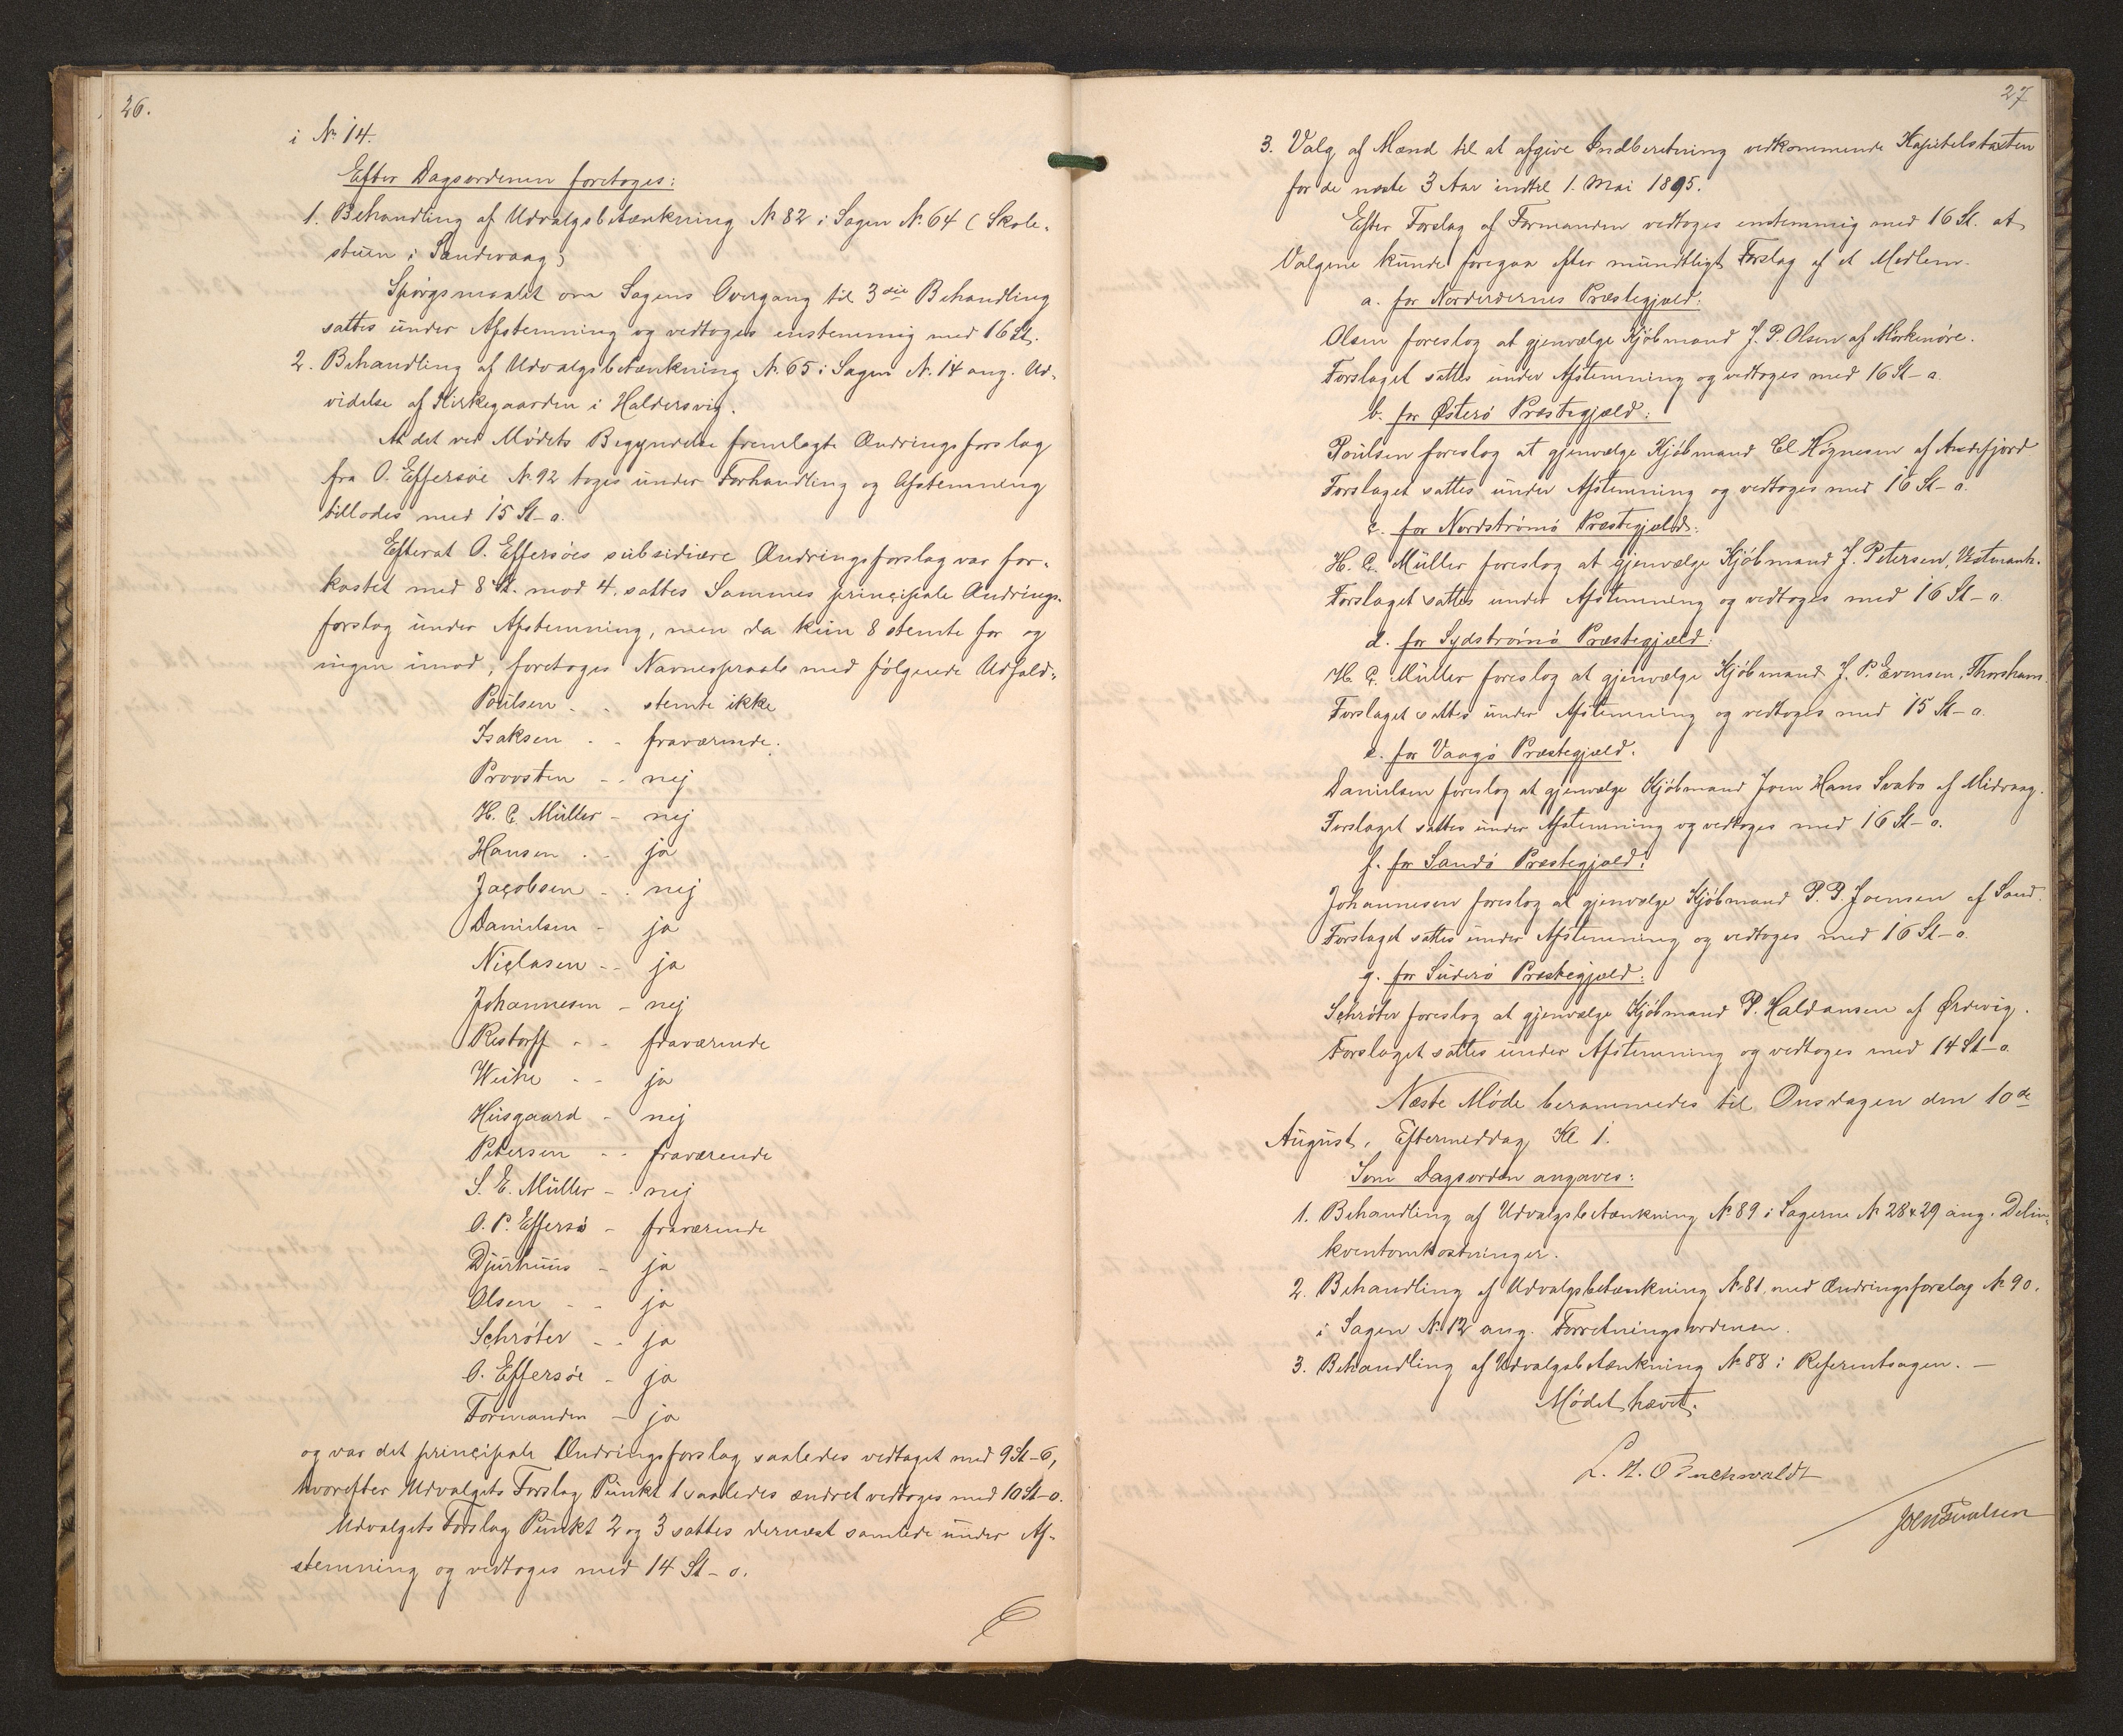 26.
i No 14.
Efter Dagsordenen foretoges:
1. Behandling af Udvalgsbetænkning No 82 i Sagen No. 64 (Skole-
stuen i Sandevaag)
Spørgsmaalet om Sagens Overgang til 3die Behandling
sattes under Afstemning og vedtoges enstemmig med 16 St.
2. Behandling af Udvalgsbetænkning No. 65 i Sagen No. 14 ang. Ud-
videlse af Kirkegaarden i Haldersvig.
At det ved Mødets Begyndelse fremlagte Ændringsforslag
fra O. Effersøe No 92 toges under Forhandling og Afstemning
tillodes med 15 St-o.
Efterat O. Effersøes subsidiære Ændringsforslag var for-
kastet med 8 St. mod 4, sattes Sammes principale Ændrings-
forslag under Afstemning, men da kun 8 stemte for og
ingen imod, foretoges Navneopraab med følgende Udfald:
Poulsen - - stemte ikke
Isaksen - - fraværende.
Provsten - - nej
H. C. Müller - nej
Hansen - - ja
Jacobsen - - nej
Danielsen - ja
Niclasen - - ja
Johannesen - nej
Restorff - - fraværende
Weihe - - ja
Husgaard - nej
Petersen - - fraværende
S. E. Müller - - nej
O. P. Effersø - fraværende
Djurhuus - ja
Olsen - - ja
Schrøter - - ja
O. Effersøe - ja
Formanden - ja
og var det principale Ændringsforslag saaledes vedtaget med 9 St-6,
hvorefter Udvalgets Forslag Punkt 1 saaledes ændret vedtoges med 10 St-o.
Udvalgets Forslag Punkt 2 og 3 sattes dernæst samlede under Af-
stemning og vedtoges med 14 St-o.
27
3. Valg af Mænd til at afgive Indberetning vedkommende Kapitelstaxten
for de næste 3 Aar indtil 1. Mai 1895.
Efter Forslag af Formanden vedtoges enstemmig med 16 St. at
Valgene kunde foregaa efter mundtligt Forslag af et Medlem.
a. for Norderøernes Præstegjæld:
Olsen foreslog at gjenvælge Kjøbmand J. P. Olsen af Morkenøre.
Forslaget sattes under Afstemning og vedtoges med 16 St-o.
b. for Østerø Præstegjæld:
Poulsen foreslog at gjenvælge Kjøbmand Cl Høgnesen af Andefjord
Forslaget sattes under Afstemning og vedtoges med 16 St-o.
c. for Nordstrømø Præstegjæld:
H. C. Müller foreslog at gjenvælge Kjøbmand J. Petersen, Vestmanh.
Forslaget sattes under Afstemning og vedtoges med 16 St-o.
d. for Sydstrømø Præstegjæld:
H. C. Müller foreslog at gjenvælge Kjøbmand J. P. Evensen, Thorshavn.
Forslaget sattes under Afstemning og vedtoges med 15 St-o.
e. for Vaagø Præstegjæld.
Danielsen foreslog at gjenvælge Kjøbmand Joen Hans Svabo af Midvaag.
Forslaget sattes under Afstemning og vedtoges med 16 St-o.
f. for Sandø Præstegjæld:
Johannesen foreslog at gjenvælge Kjøbmand P. P. Joensen af Sand.
Forslaget sattes under Afstemning og vedtoges med 16 St-o.
g. for Suderø Præstegjæld:
Schrøter foreslog at gjenvælge Kjøbmand P. Haldansen af Ørdevig.
Forslaget sattes under Afstemning og vedtoges med 14 St-o.
Næste Møde berammedes til Onsdagen den 10de
August, Eftermiddag Kl 1.
Som Dagsorden angaves:
1. Behandling af Udvalgsbetænkning No 89 i Sagerne No 28 & 29 ang. Delin-
kventomkostninger.
2. Behandling af Udvalgsbetænkning No 81, med Ændringsforslag No 90.
i Sagen No 12 ang. Forretningsordenen.
3. Behandling af Udvalgsbetænkning No 88 i Referentsagen. -
Mødet hævet.
L. H. O Buchwaldt
Joen Poulsen